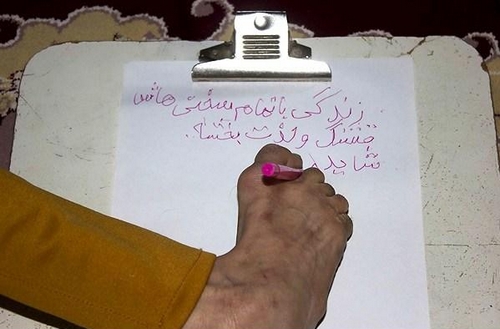 زندگی با تمام سختی هاش
قشنگ و لذت بخشه.
شاید